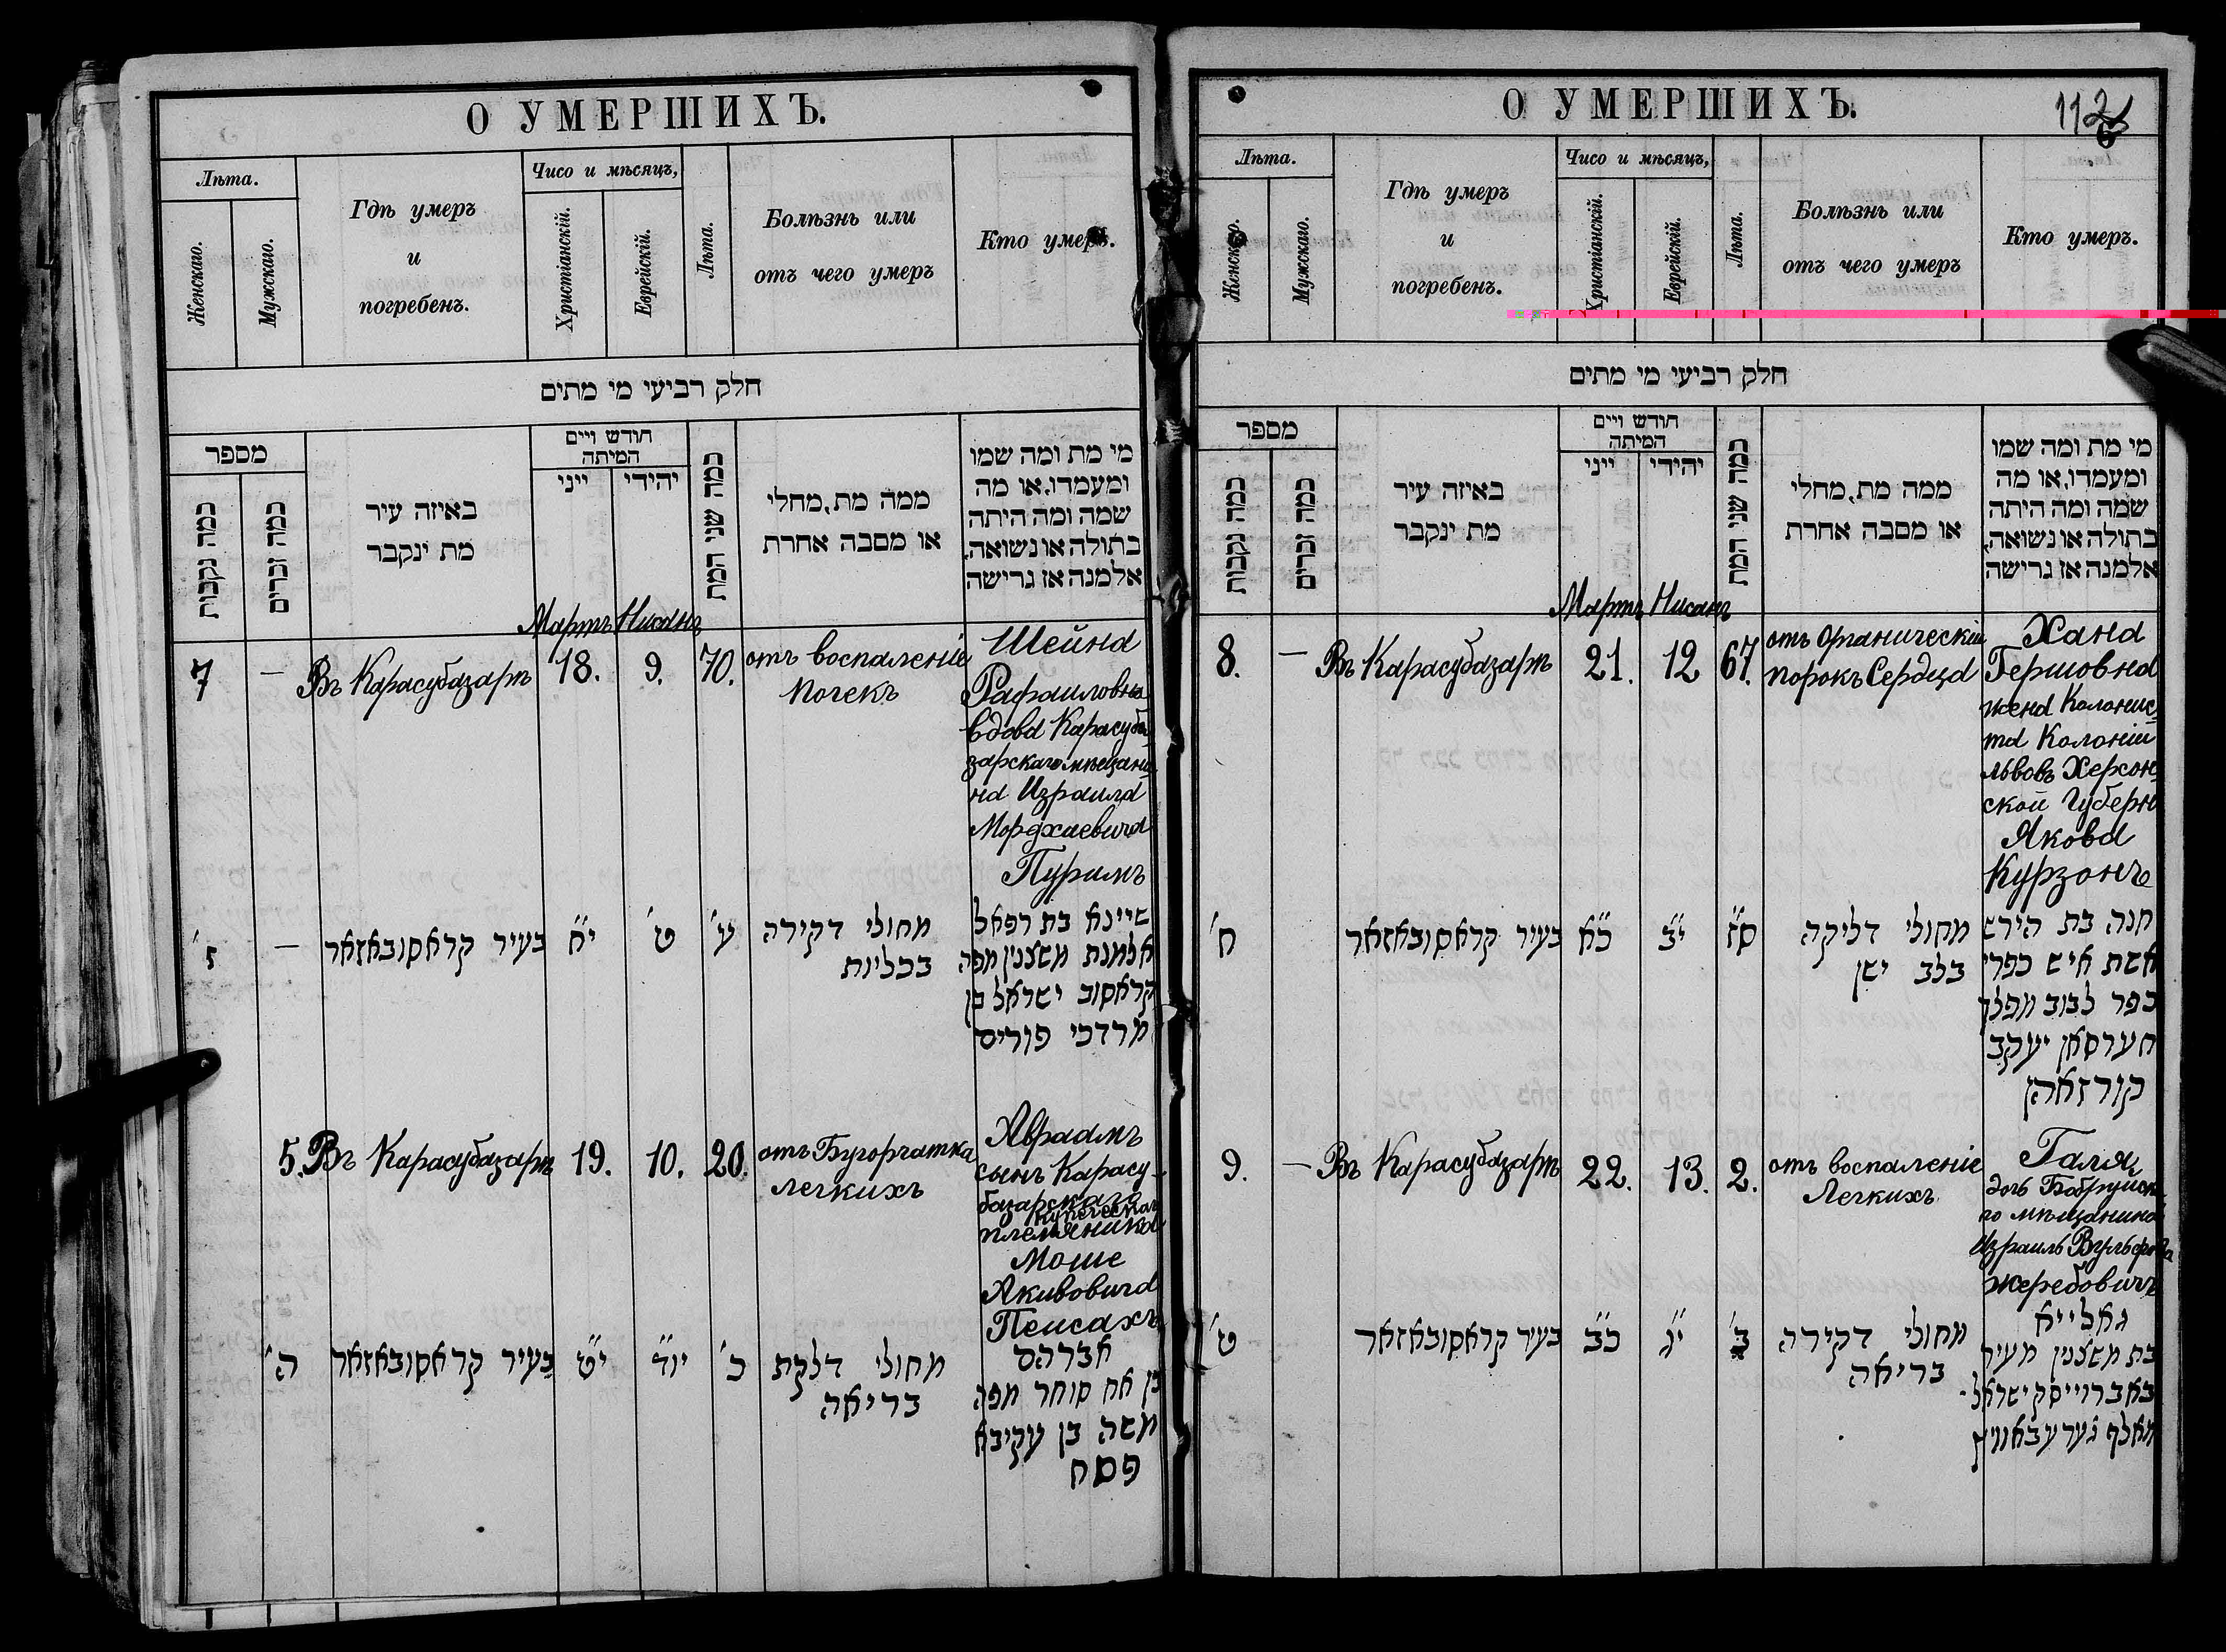 О УМЕРШИХЪ.
Лѣта.
Женскаго.
Мужскаго.
Гдѣ умеръ
и
погребенъ.
Чисо и мѣсяцъ,
Христіанскій.
Еврейскій.
Лѣта.
Болѣзнь или
отъ чего умеръ
Кто умеръ.
חלק רביעי מי מתים
מספר
כמה נקבות
כמה זכרים
באיזה עיר
מת ינקבר
חודש ויים
המיתה
ייני
יהידי
כמה שני המת
ממה מת, מחלי
או מסבה אחרת
מי מת ומה שמו
ומעמדו, או מה
שמה ומה היתה
בתולה או נשואה,
אלמנה אז גרישה
Мартъ Нисанъ
7
—
Въ Карасубазарѣ
18.
9.
70.
отъ воспаленіе
почекъ
Шейна
Рафаиловна
вдова Карасуба
зарскаго мѣщани
на Израиля
Мордхаевича
Пуримъ
ז'
—
בעיר קראסובאזאר
י"ח
ט'
ע'
מחולי דקירה
בכליות
שיינא בת רפאל
אלמנת משצנין מפה
קראסוב ישראל בן
מרדכי פורים
5.
Въ Карасубазарѣ
19.
10.
20.
отъ Бугорчатка
легкихъ
Авраамъ
сынъ Карасу-
базарскаго
купеческаго
племяника
Моше
Акивовича
Пейсахъ
ה'
בעיר קראסובאזאר
י"ט
יו"ד
כ'
מחולי דלקת
בריאה
אברהם
בן אח סוחר מפה
משה בן עקיבא
פסח
О УМЕРШИХЪ.
112
Лѣта.
Женскаго.
Мужскаго.
Гдѣ умеръ
и
погребенъ.
Чисо и мѣсяцъ,
Христіанскій.
Еврейскій.
Лѣта.
Болѣзнь или
отъ чего умеръ
Кто умеръ.
חלק רביעי מי מתים
מספר
כמה נקבות
כמה זכרים
באיזה עיר
מת ינקבר
חודש ויים
המיתה
ייני
יהידי
כמה שני המת
ממה מת, מחלי
או מסבה אחרת
מי מת ומה שמו
ומעמדו, או מה
שמה ומה היתה
בתולה או נשואה,
אלמנה אז גרישה
Мартъ Нисанъ
8.
—
Въ Карасубазарѣ
21.
12
67.
отъ Органическій
порокъ Сердца
Хана
Гершовна
жена Колонис
та Колоніи
Львовъ Херсон
ской Губерн
Якова
Курзонъ
ח'
בעיר קראסובאזאר
כ"א
י"ב
ס"ז
מחולי דליקה
בלב ישן
חנה בת הירש
אשת איש כפרי
כפר לבוב מפלך
חערסאן יעקב
קורזאהן
9.
—
Въ Карасубазарѣ
22.
13.
2.
отъ воспаленіе
Легкихъ
Галя
дочь Бобруйска
го мѣщанина
Израиль Вульфова
Жеребовичъ
ט'
בעיר קראסובאזאר
כ"ב
י"ג
ב'
מחולי דקירה
בריאה
גאלייא
בת משצנין מעיר
באברוייסק ישראל
וואלף זערעבאוויץ